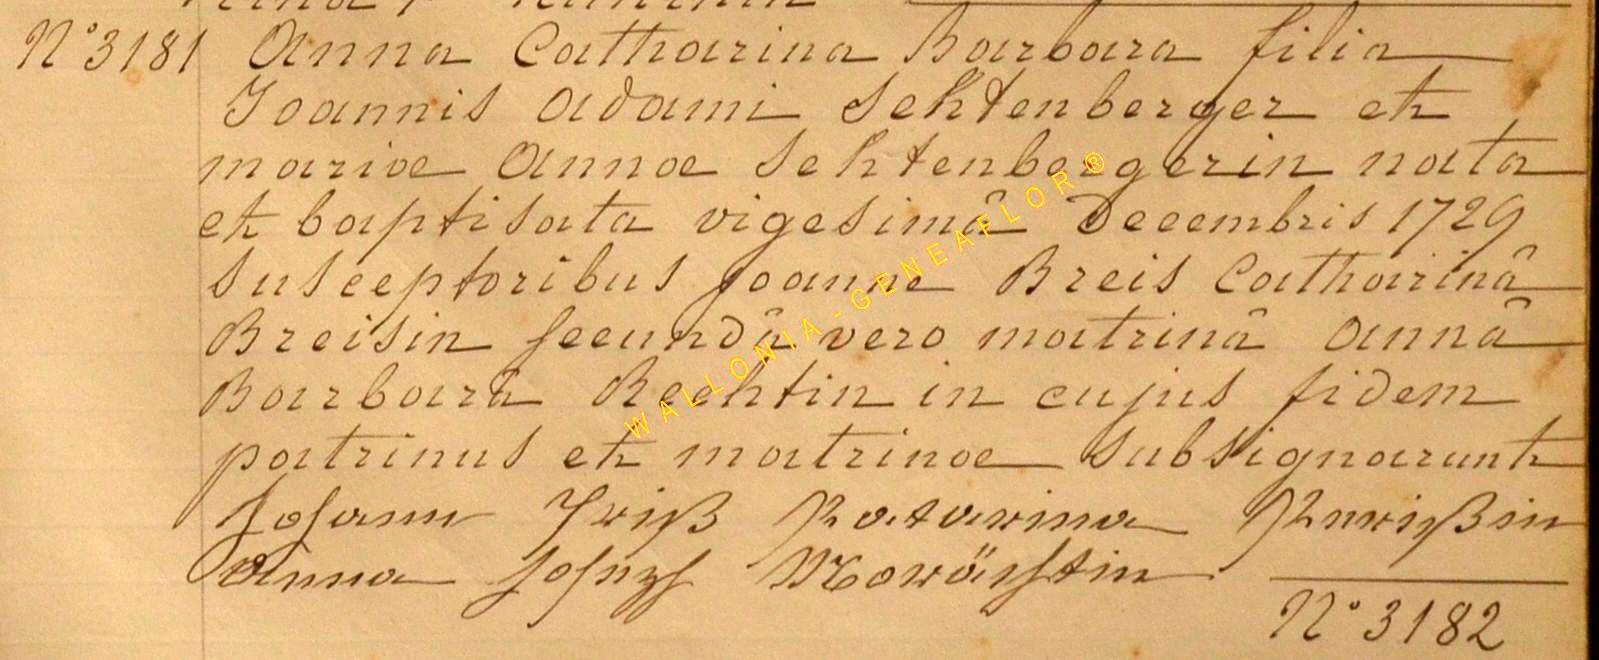 N° 3181 Anna Catharina Barbara filia
Joannis Adami Sehtenberger et
mariae Annae Sehtenbergerin nata
et baptisata vigesimâ Decembris 1729
susceptoribus Joanne Breis Catharinâ
Breisin secundâ vero matrinâ Annâ
Barbarâ Rechtin in cujus fidem
patrinus et matrinae subsignarunt
Johann Katarina
Anna
N° 3182
WALLONIA-GENEAFLOR®